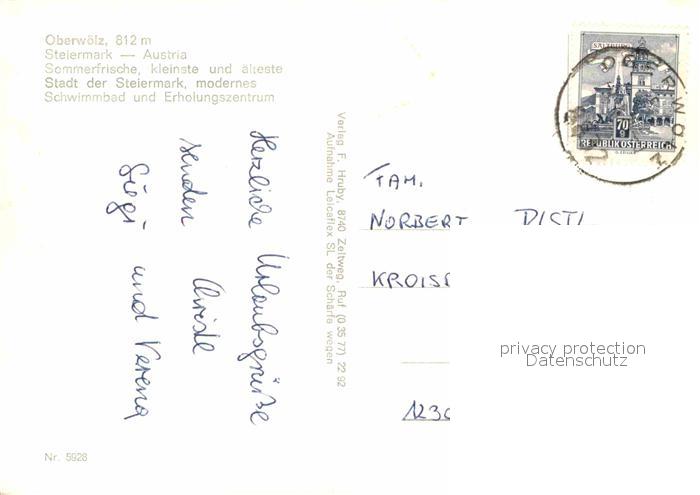 Oberwölz, 812 m
Steiermark — Austria
Sommerfrische, kleinste und älteste
Stadt der Steiermark, modernes
Schwimmbad und Erholungszentrum
Herzliche Urlaubsgrüße
senden Christl
Giegi und Verena
Verlag F. Hruby, 8740 Zeltweg, Ruf (0 35 77) 22 92
Aufnahme Leicaflex SL der Schärfe wegen
SALZBURG
70 g
REPUBLIK ÖSTERREICH
OBERWÖLZ
FAM.
NORBERT DICTI
KROISS
privacy protection
Datenschutz
1236
Nr. 5928